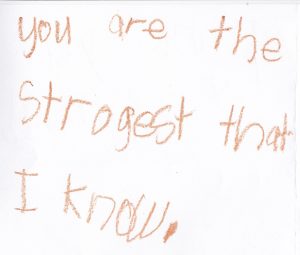 you are the
strogest that
I know.